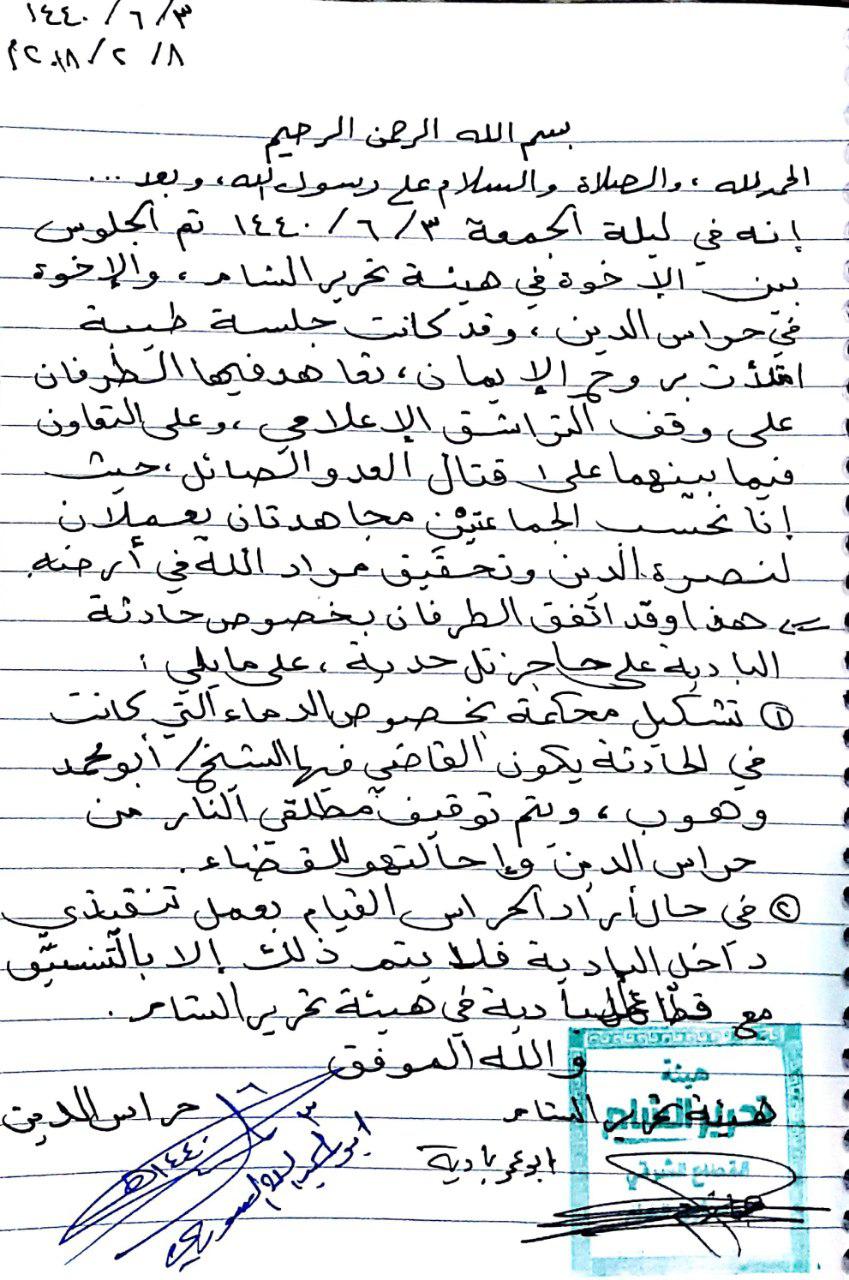 ١٤٤٠/٦/٣
٢٠١٨/٢/٨م
بسم الله الرحمن الرحيم
الحمد لله، والصلاة والسلام على رسول الله، وبعد...
إنه في ليلة الجمعة ١٤٤٠/٦/٣ تم الجلوس
بين الإخوة في هيئة تحرير الشام، والإخوة
في حراس الدين، وقد كانت جلسة طيبة
امتلأت بروح الإيمان، تعاهد فيها الطرفان
على وقف التراشق الإعلامي، وعلى التعاون
فيما بينهما على قتال العدو الصائل، حيث
إنا نحسب الجماعتين مجاهدتان يعملان
لنصرة الدين وتحقيق مراد الله في أرضه.
هذا وقد اتفق الطرفان بخصوص حادثة
البادية على حاجز تل حدية، على ما يلي:
① تشكيل محكمة بخصوص الدماء التي كانت
في الحادثة يكون القاضي فيها الشيخ/ أبو محمد
وهوب، ويتم توقيف مطلقي النار من
حراس الدين وإحالتهم للقضاء.
② في حال أراد الحراس القيام بعمل تنفيذي
داخل البادية فلا يتم ذلك إلا بالتنسيق
مع قطاع البادية في هيئة تحرير الشام.
والله الموفق
هيئة تحرير الشام
حراس الدين
ابو عمر بادية
السوري
٣
٦
١٤٤٠هـ
هيئة
تحرير الشام
القطاع الشرقي